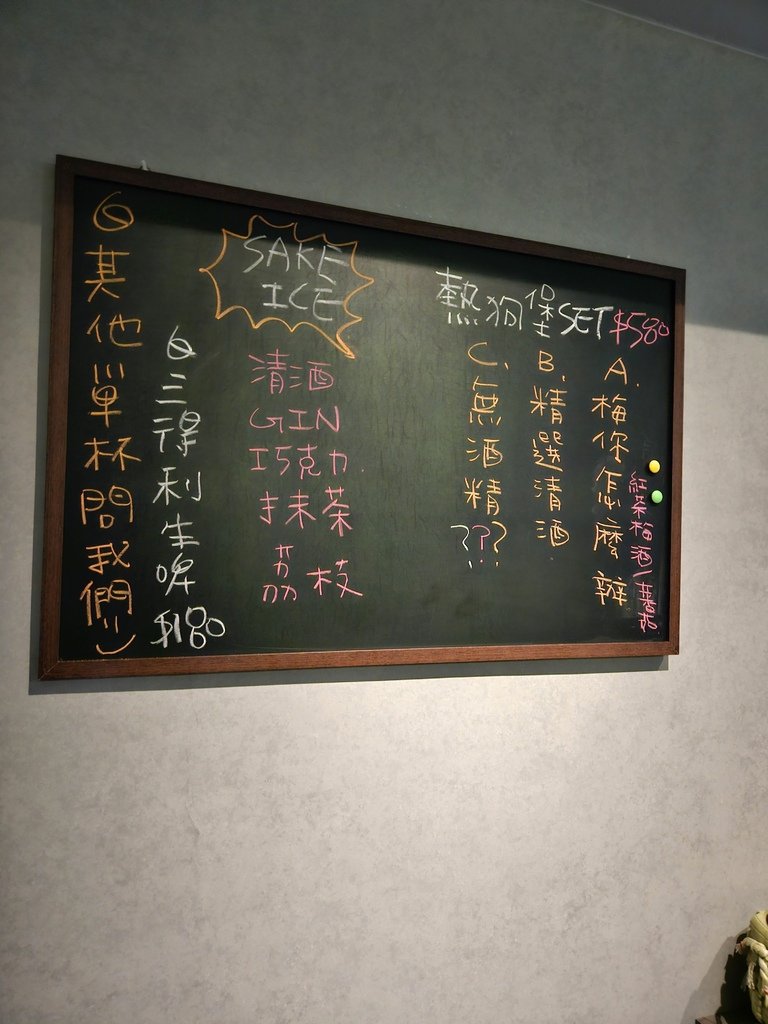 熱狗堡SET $580
A. 梅你怎麼辦
紅茶梅酒/蕃茄
B. 精選清酒
C. 無酒精???
SAKE
ICE
清酒
GIN
巧克力.
抹茶
荔枝
三得利生啤 $180
其他單杯問我們